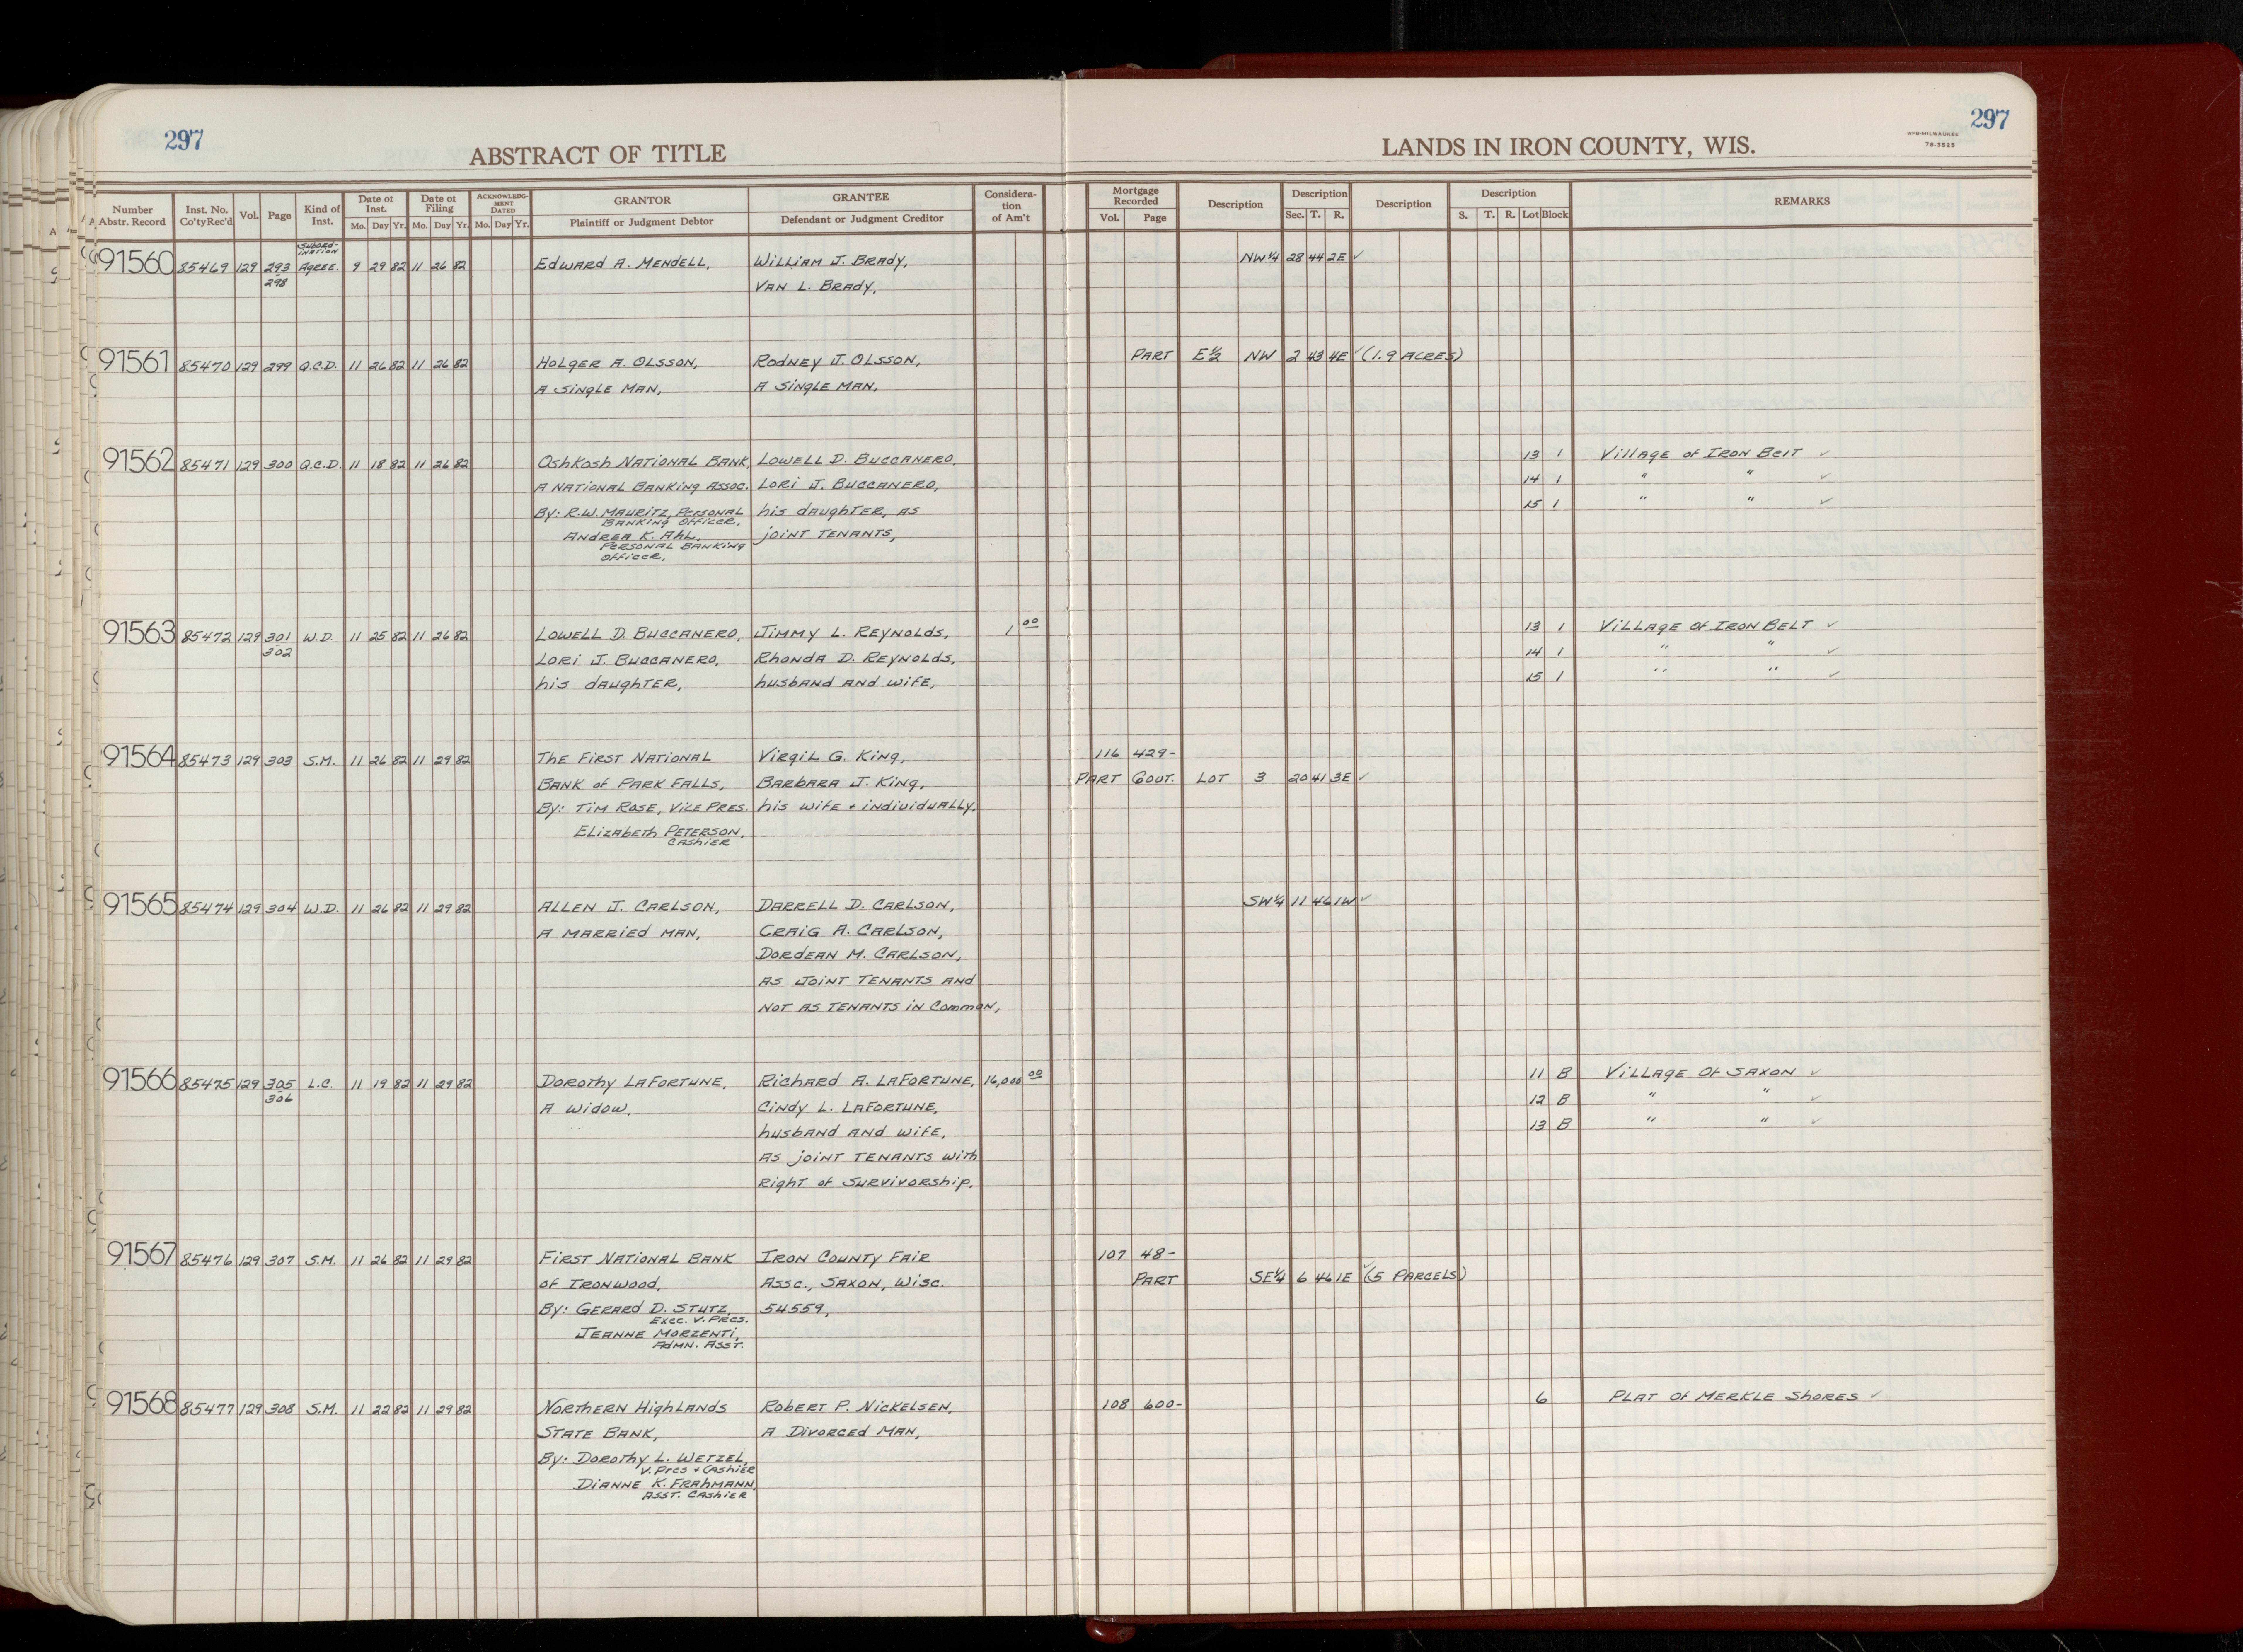 297
ABSTRACT OF TITLE
LANDS IN IRON COUNTY, WIS.
WPB-MILWAUKEE
78-3525
297
Number Abstr. Record
Inst. No. Co'tyRec'd
Vol.
Page
Kind of Inst.
Date of Inst. Mo. Day Yr.
Date of Filing Mo. Day Yr.
ACKNOWLEDGMENT DATED Mo. Day Yr.
GRANTOR
Plaintiff or Judgment Debtor
GRANTEE
Defendant or Judgment Creditor
Considera-
tion
of Am't
Mortgage Recorded Vol. Page
Description
Description Sec. T. R.
Description
Description S. T. R. Lot Block
REMARKS
Subord-
ination
91560 85469 129 293 Agree. 9 29 82 11 26 82 Edward A. Mendell, William J. Brady, NW¼ 28 44 2E ✓
298 Van L. Brady,
91561 85470 129 299 Q.C.D. 11 26 82 11 26 82 Holger A. Olsson, Rodney J. Olsson, PART E½ NW 2 43 4E ✓ (1.9 ACRES)
A Single Man, A Single Man,
91562 85471 129 300 Q.C.D. 11 18 82 11 26 82 Oshkosh National Bank, Lowell D. Buccanero, 13 1 Village of Iron Belt ✓
A National Banking Assoc. Lori J. Buccanero, 14 1 " " ✓
By: R.W. Mauritz, Personal his daughter, as 15 1 " " ✓
Banking Officer,
Andrea K. Ahl, joint tenants,
Personal Banking
Officer,
91563 85472 129 301 W.D. 11 25 82 11 26 82 Lowell D. Buccanero, Jimmy L. Reynolds, 1 00 13 1 Village of Iron Belt ✓
302 Lori J. Buccanero, Rhonda D. Reynolds, 14 1 " " ✓
his daughter, husband and wife, 15 1 " " ✓
91564 85473 129 303 S.M. 11 26 82 11 29 82 The First National Virgil G. King, 116 429-
Bank of Park Falls, Barbara J. King, PART GOVT. LOT 3 20 41 3E ✓
By: Tim Rose, Vice Pres. his wife + individually.
Elizabeth Peterson,
Cashier
91565 85474 129 304 W.D. 11 26 82 11 29 82 Allen J. Carlson, Darrell D. Carlson, SW¼ 11 46 1W ✓
A married man, Craig A. Carlson,
Dordean M. Carlson,
as joint tenants and
not as tenants in common,
91566 85475 129 305 L.C. 11 19 82 11 29 82 Dorothy LaFortune, Richard A. LaFortune, 16,000 00 11 B Village of Saxon ✓
306 A widow, Cindy L. LaFortune, 12 B " " ✓
husband and wife, 13 B " " ✓
as joint tenants with
right of survivorship.
91567 85476 129 307 S.M. 11 26 82 11 29 82 First National Bank Iron County Fair 107 48-
of Ironwood, Assc., Saxon, Wisc. PART SE¼ 6 46 1E ✓ (5 PARCELS)
By: Gerard D. Stutz, 54559,
Exec. V. Pres.
Jeanne Morzenti,
Admn. Asst.
91568 85477 129 308 S.M. 11 22 82 11 29 82 Northern Highlands Robert P. Nickelsen, 108 600- 6 Plat of Merkle Shores ✓
State Bank, A Divorced Man,
By: Dorothy L. Wetzel,
V. Pres + Cashier
Dianne K. Frahmann,
Asst. Cashier